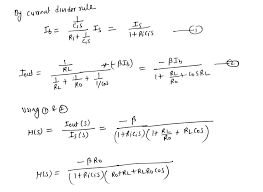 By current divider rule
I_b = \frac{\frac{1}{C_i s}}{R_i + \frac{1}{C_i s}} I_s = \frac{I_s}{1 + R_i C_i s} —①
I_{out} = \frac{\frac{1}{R_L}}{\frac{1}{R_L} + \frac{1}{R_o} + \frac{1}{1/C_o s}} * (-βI_b) = \frac{-βI_b}{1 + \frac{R_L}{R_o} + C_o s R_L} —②
Using ① & ②
H(s) = \frac{I_{out}(s)}{I_s(s)} = \frac{-β}{(1 + R_i C_i s)(1 + \frac{R_L}{R_o} + R_L C_o s)}
H(s) = \frac{-β R_o}{(1 + R_i C_i s)(R_o + R_L + R_L R_o C_o s)}